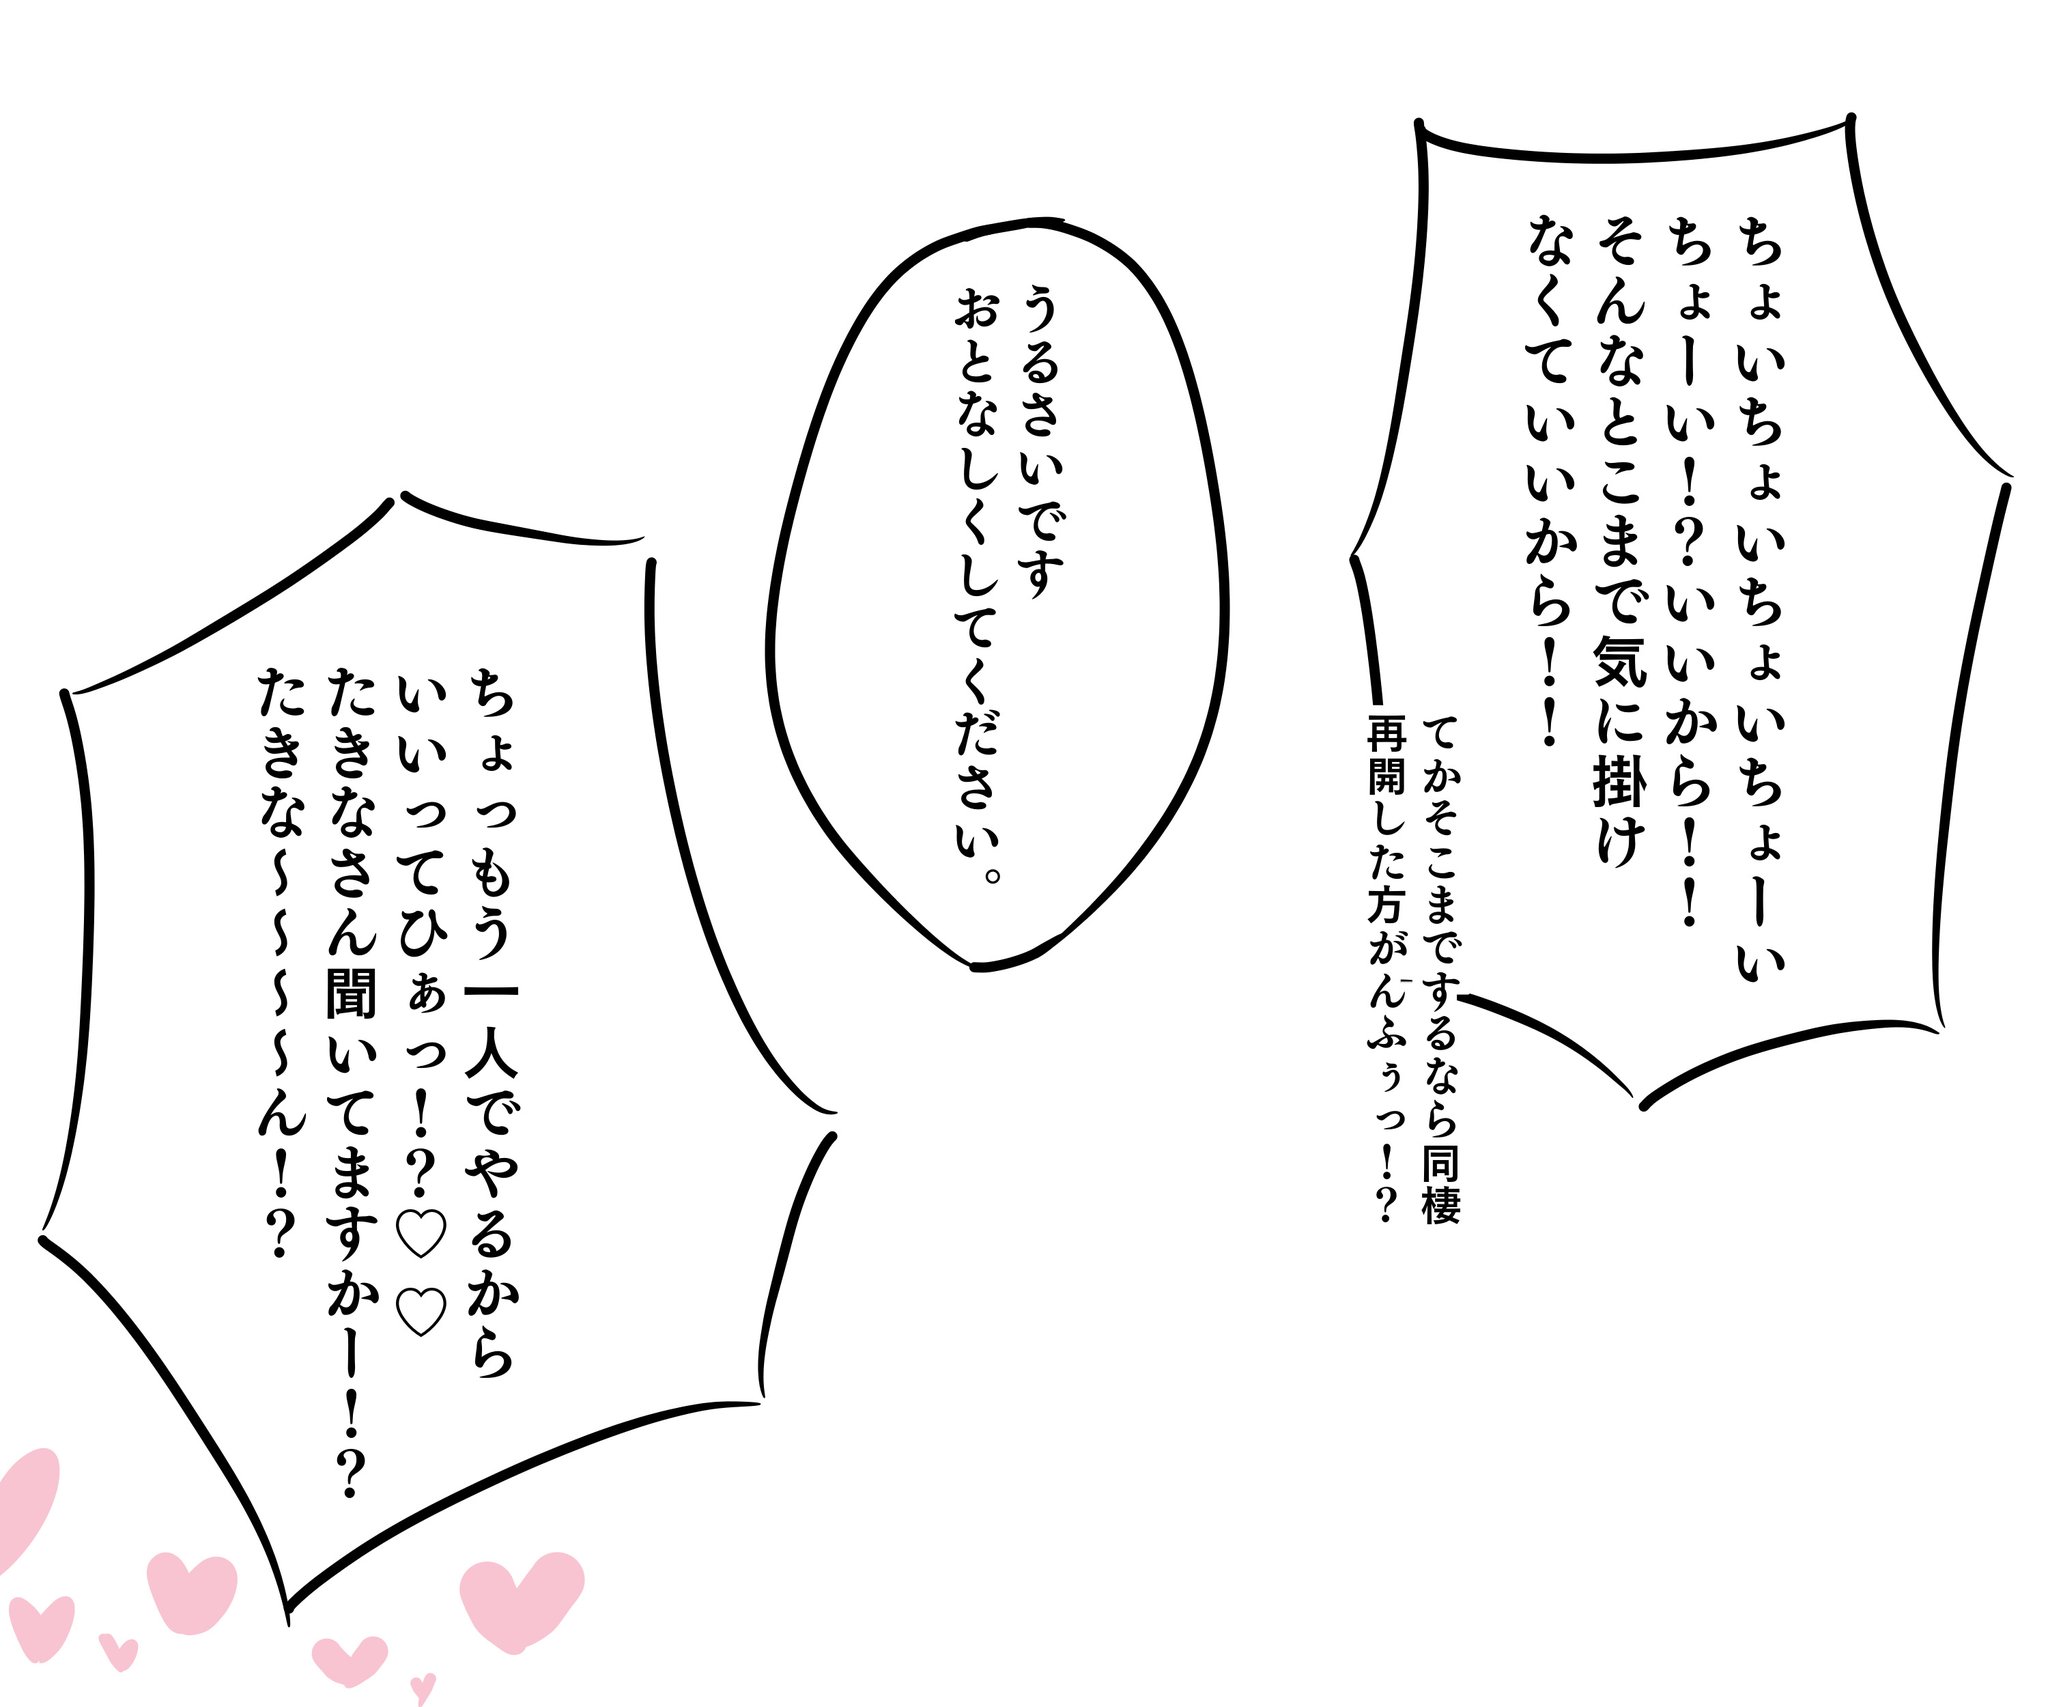 ちょいちょいちょいちょーい
ちょーい!?いいから!!
そんなとこまで気に掛け
なくていいから!!
てかそこまでするなら同棲
再開した方がんふぅっ!?
うるさいです
おとなしくしてください。
ちょっもう一人でやるから
いいってひぁっ!?♡♡
たきなさん聞いてますかー!?
たきな〜〜〜〜ん!?